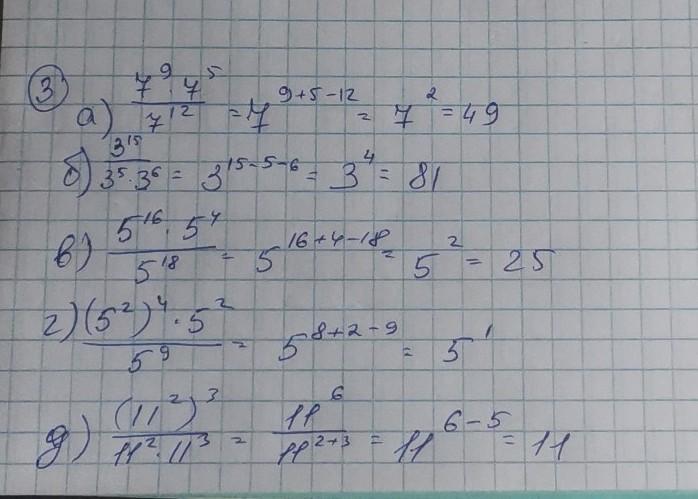 3
а) (7⁹ · 7⁵)/7¹² = 7⁹⁺⁵⁻¹² = 7² = 49
б) 3¹⁵/(3⁵ · 3⁶) = 3¹⁵⁻⁵⁻⁶ = 3⁴ = 81
в) (5¹⁶ · 5⁴)/5¹⁸ = 5¹⁶⁺⁴⁻¹⁸ = 5² = 25
г) ((5²)⁴ · 5²)/5⁹ = 5⁸⁺²⁻⁹ = 5¹
д) (11²)³/(11² · 11³) = 11⁶/11²⁺³ = 11⁶⁻⁵ = 11